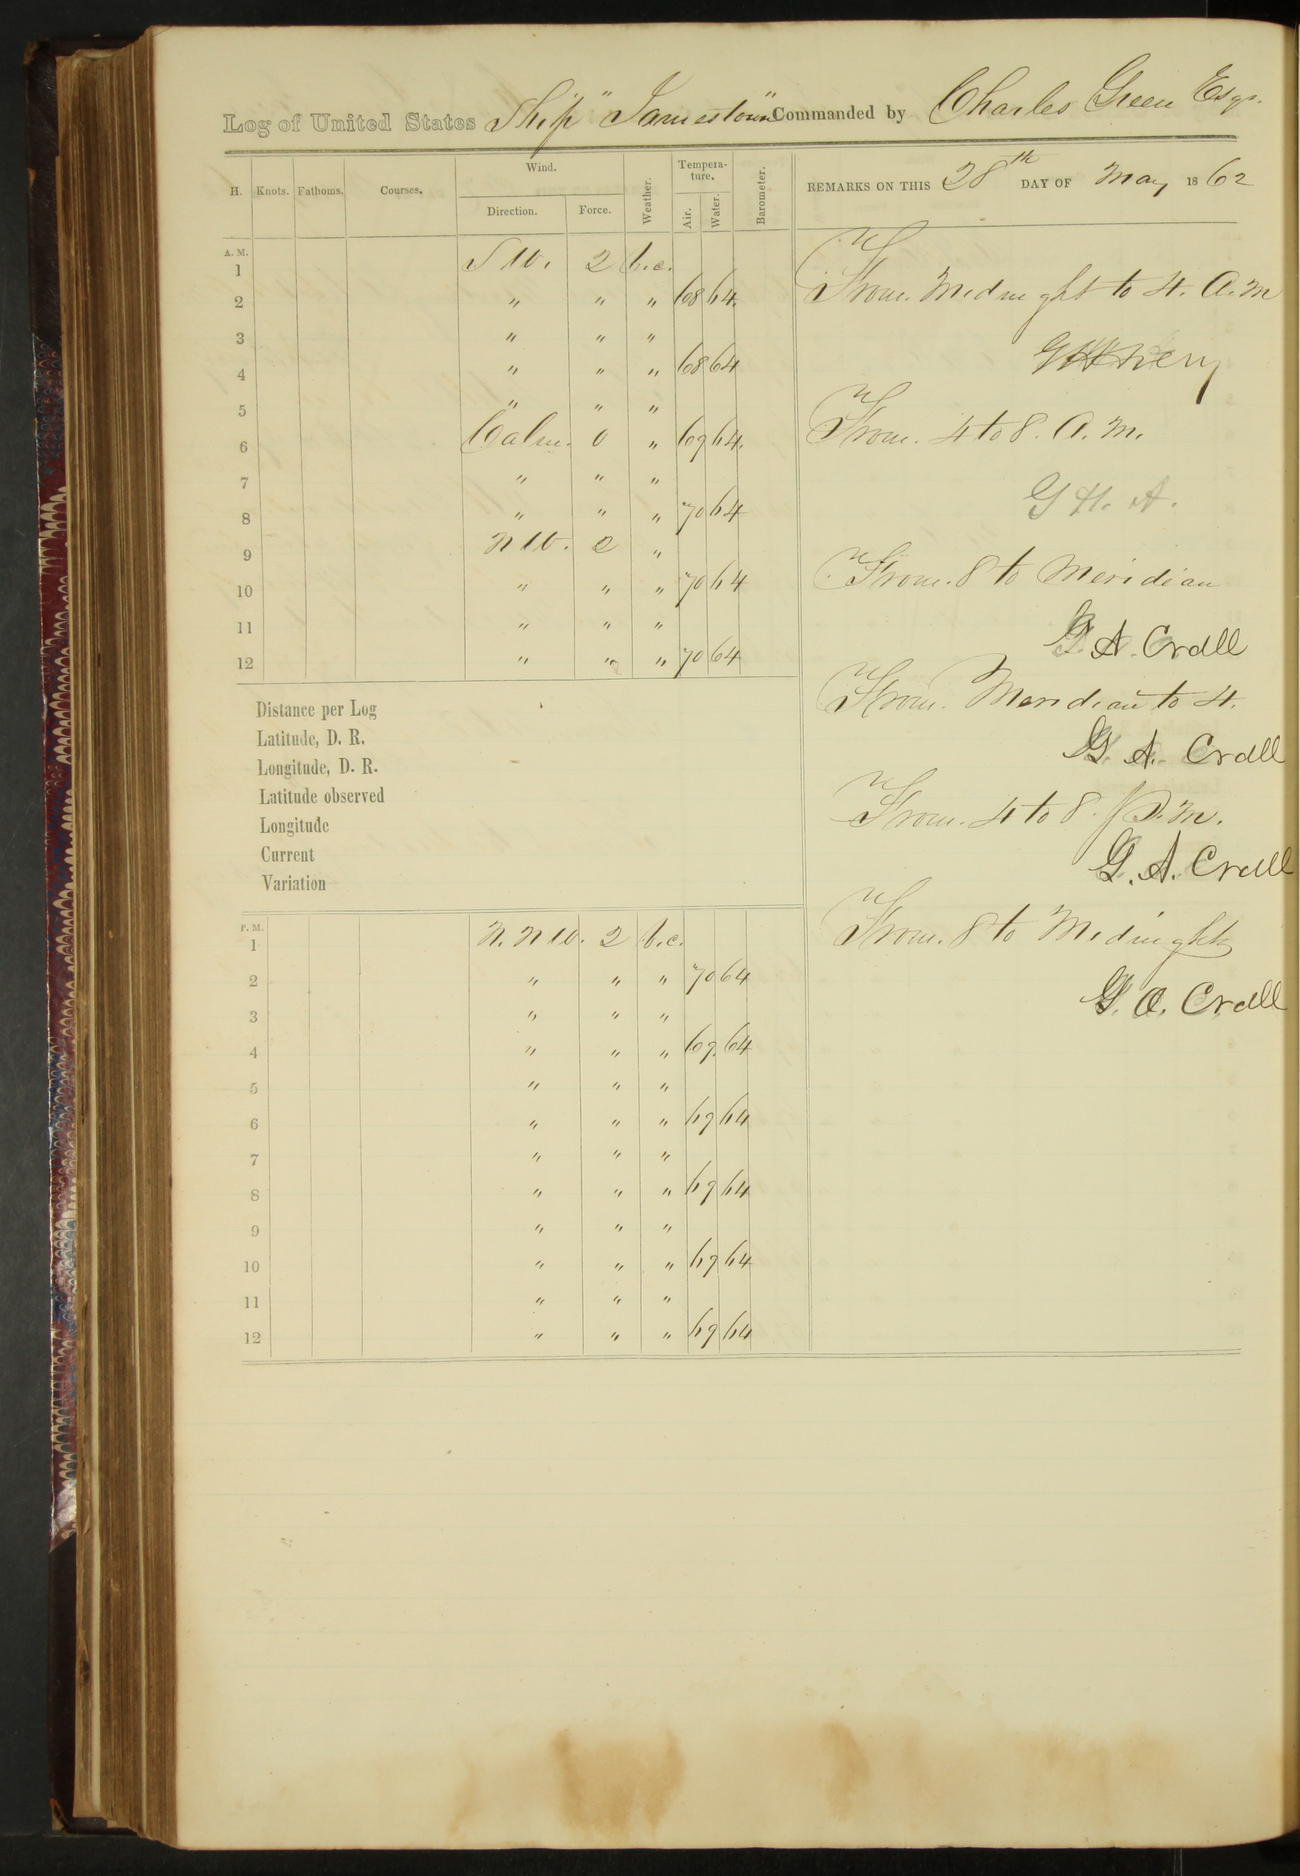 Log of United States Ship "Jamestown" Commanded by Charles Green Esqr.
H. Knots. Fathoms. Courses. Wind. Direction. Force. Weather. Temperature. Air. Water. Barometer.
REMARKS ON THIS 28th DAY OF May 1862
A. M.
1 S W. 2 b.c.
2 " " " 68 64
3 " " "
4 " " " 68 64
5 " " "
6 Calm. 0 " 69 64.
7 " " "
8 " " " 70 64
9 N W. 2 "
10 " " " 70 64
11 " " "
12 " " " 70 64
Distance per Log
Latitude, D. R.
Longitude, D. R.
Latitude observed
Longitude
Current
Variation
P. M.
1 N. N W. 2 b.c.
2 " " " 70 64
3 " " "
4 " " " 69. 64
5 " " "
6 " " " 69 64
7 " " "
8 " " " 69 64
9 " " "
10 " " " 69 64
11 " " "
12 " " " 69 64
From. Midnight to 4. A. M
From. 4 to 8. A. M.
G H. A.
From. 8 to Meridian
G. A. Crall
From. Meridian to 4.
G A. Crall
From. 4 to 8. P. M.
G. A. Crall
From. 8 to Midnight
G. A. Crall